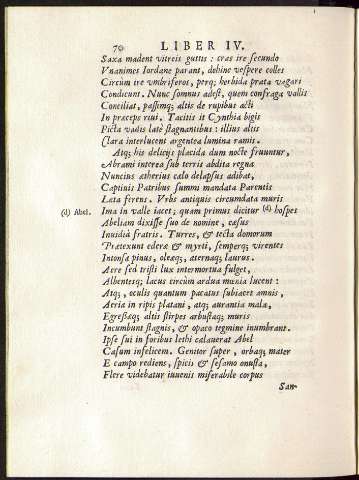 70 LIBER IV.
Saxa madent vitreis guttis: cras ire secundo
Vnanimes Iordane parant, dehinc vespere colles
Circùm ire vmbriferos, perq; herbida prata vagari
Condicunt. Nunc somnus adest, quem confraga vallis
Conciliat, passimq; altis de rupibus acti
In præceps riui. Tacitis it Cynthia bigis
Picta vadis latè stagnantibus: illius altis
Clara interlucent argentea lumina ramis.
Atq; his delicijs placida dum nocte fruuntur,
Abrami interea sub terris abdita regna
Nuncius ætherius cælo delapsus adibat,
Captiuis Patribus summi mandata Parentis
Lata ferens. Vrbs antiquis circumdata muris
(d) Abel. Ima in valle iacet; quam primus dicitur (d) hospes
Abeliam dixisse suo de nomine, cæsus
Inuidiâ fratris. Turres, & tecta domorum
Prætexunt ederæ & myrti, semperq; virentes
Intonsæ pinus, oleæq;, æternaq; laurus.
Aere sed tristi lux intermortua fulget,
Albentesq; lacus circùm ardua mœnia lucent:
Atq;, oculis quantum pacatus subiacet amnis,
Aeria in ripis platani, atq; aurantia mala,
Egressæq; altis stirpes arbustaq; muris
Incumbunt stagnis, & opaco tegmine inumbrant.
Ipse sui in foribus lethi calauerat Abel
Casum infelicem. Genitor super, orbaq; mater
E campo rediens, spicis & sesamo onusta,
Flere videbatur iuuenis miserabile corpus
San-